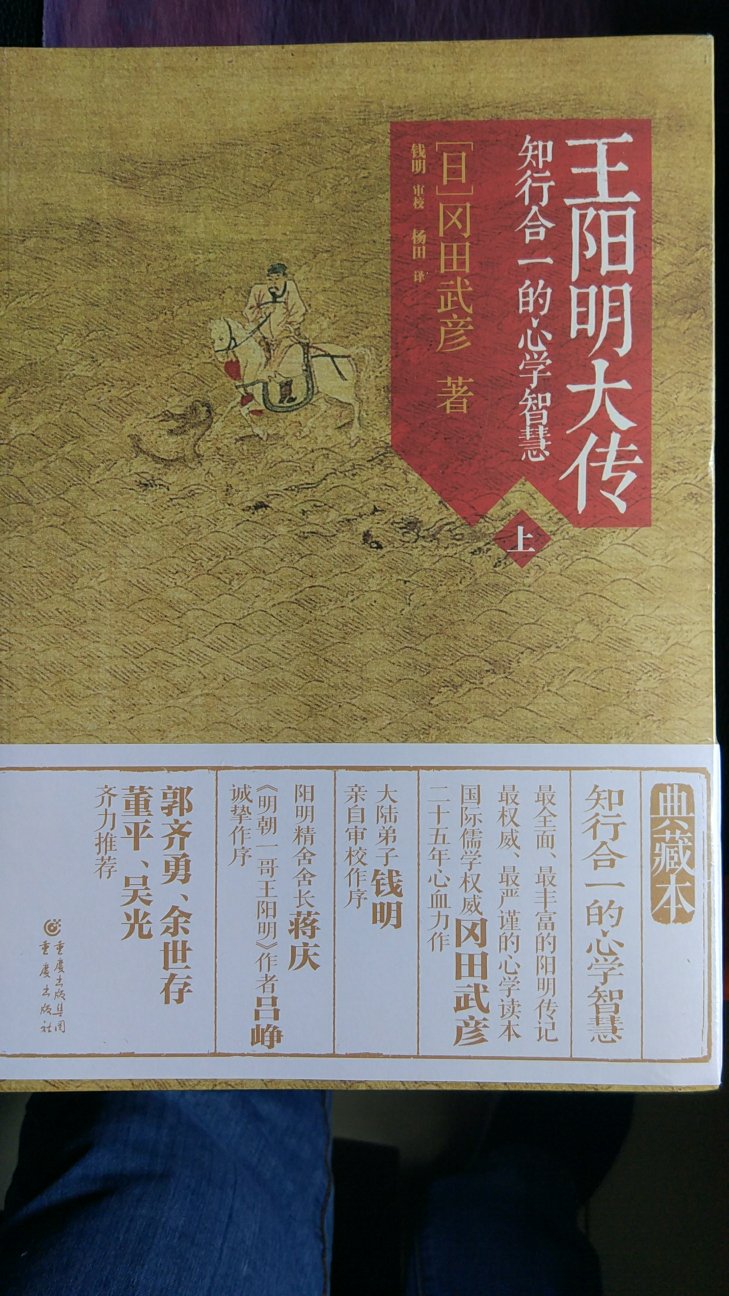 王阳明大传
知行合一的心学智慧
[日]冈田武彦 著
钱明 审校 杨田 译
上
典藏本
知行合一的心学智慧
最全面、最丰富的阳明传记
最权威、最严谨的心学读本
国际儒学权威冈田武彦
二十五年心血力作
大陆弟子钱明
亲自审校作序
阳明精舍舍长蒋庆
《明朝一哥王阳明》作者吕峥
诚挚作序
郭齐勇、余世存
董平、吴光
齐力推荐
重庆出版集团
重庆出版社